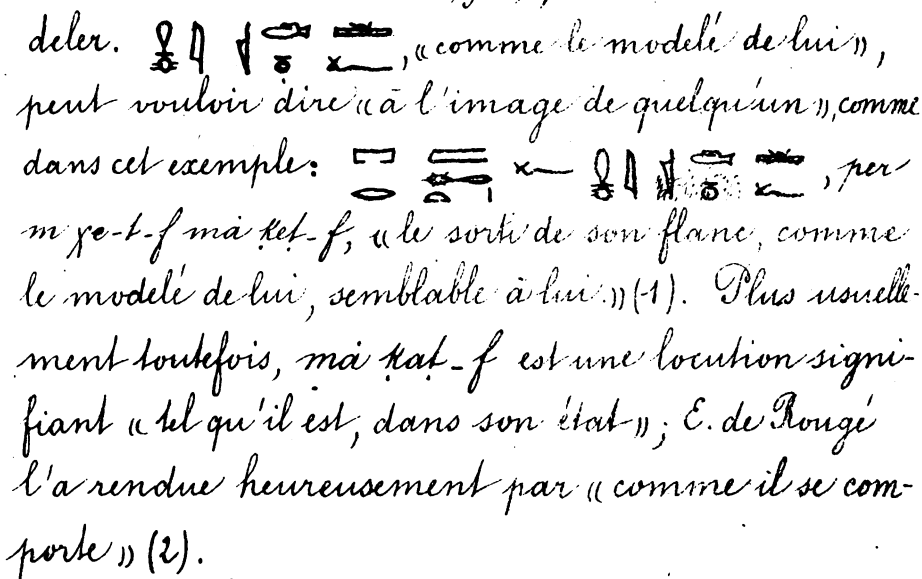 deler. , «comme le modelé de lui»,
peut vouloir dire «à l'image de quelqu'un», comme
dans cet exemple: , per
m χe-t-f mȧ ḳeṭ-f, «le sorti de son flanc, comme
le modelé de lui, semblable à lui.» (1). Plus usuelle-
ment toutefois, mȧ ḳaṭ-f est une locution signi-
fiant «tel qu'il est, dans son état»; E. de Rougé
l'a rendue heureusement par «comme il se com-
porte» (2).